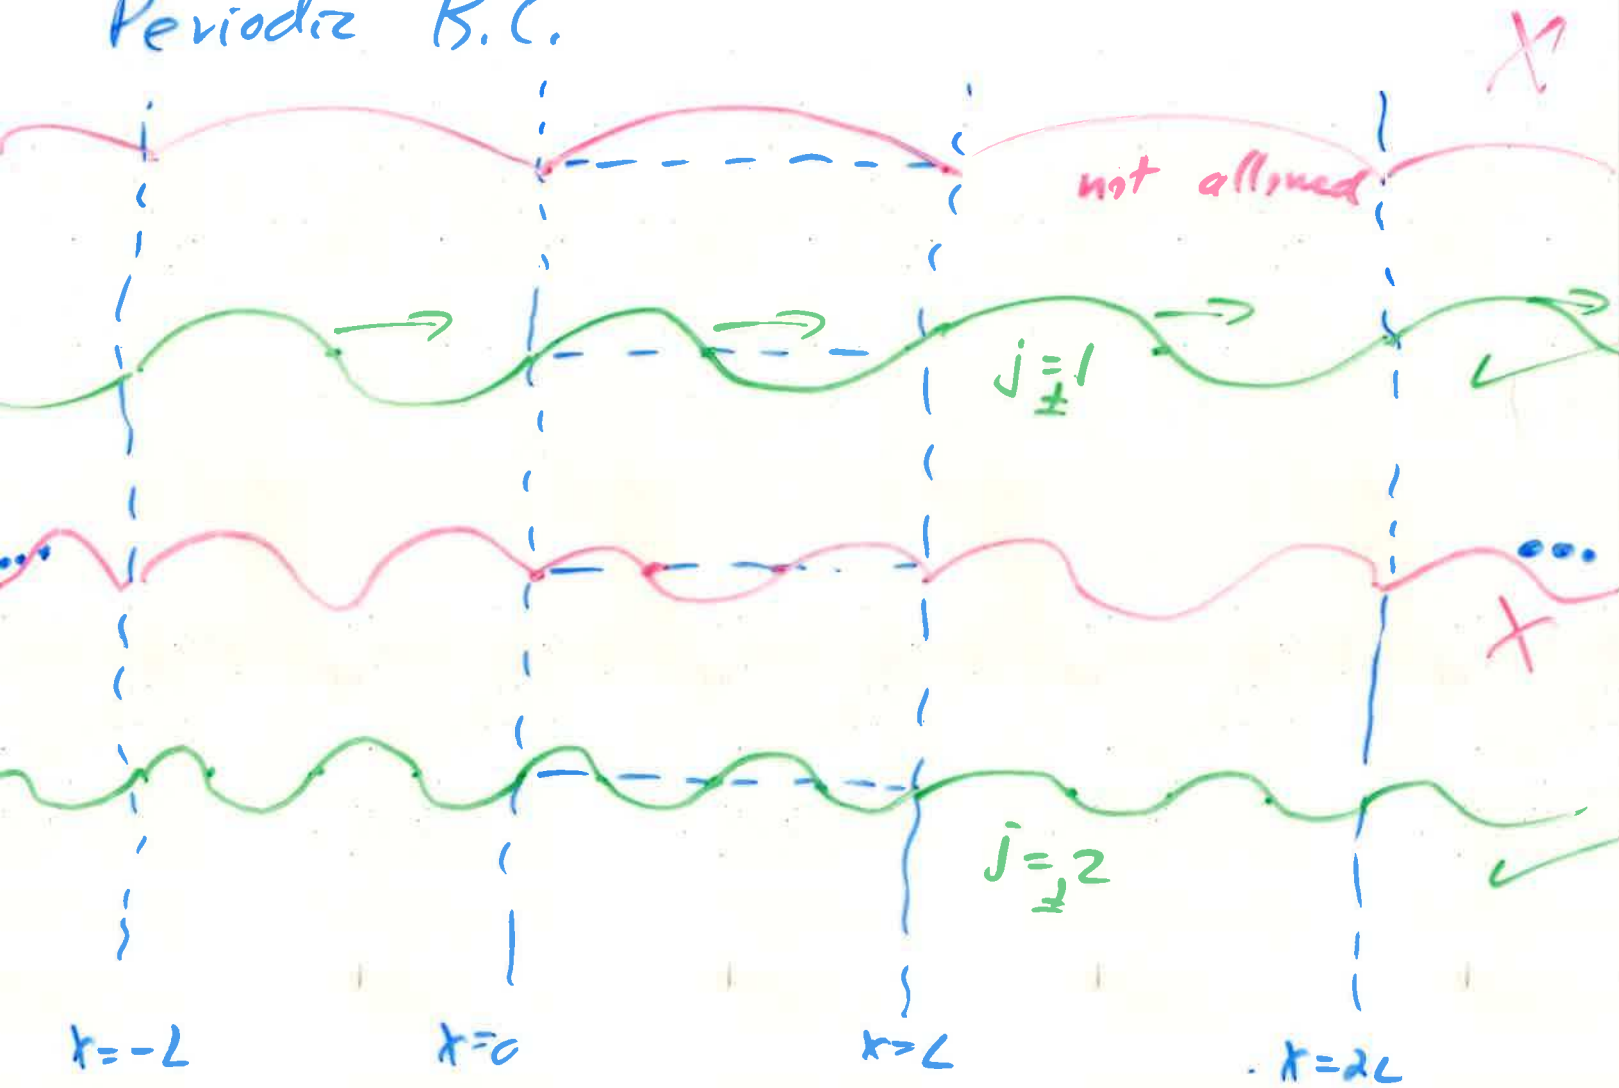 Periodic B.C.
X
not allowed
j = ± 1
✓
...
...
X
j = ± 2
✓
x = -L
x = 0
x = L
x = 2L